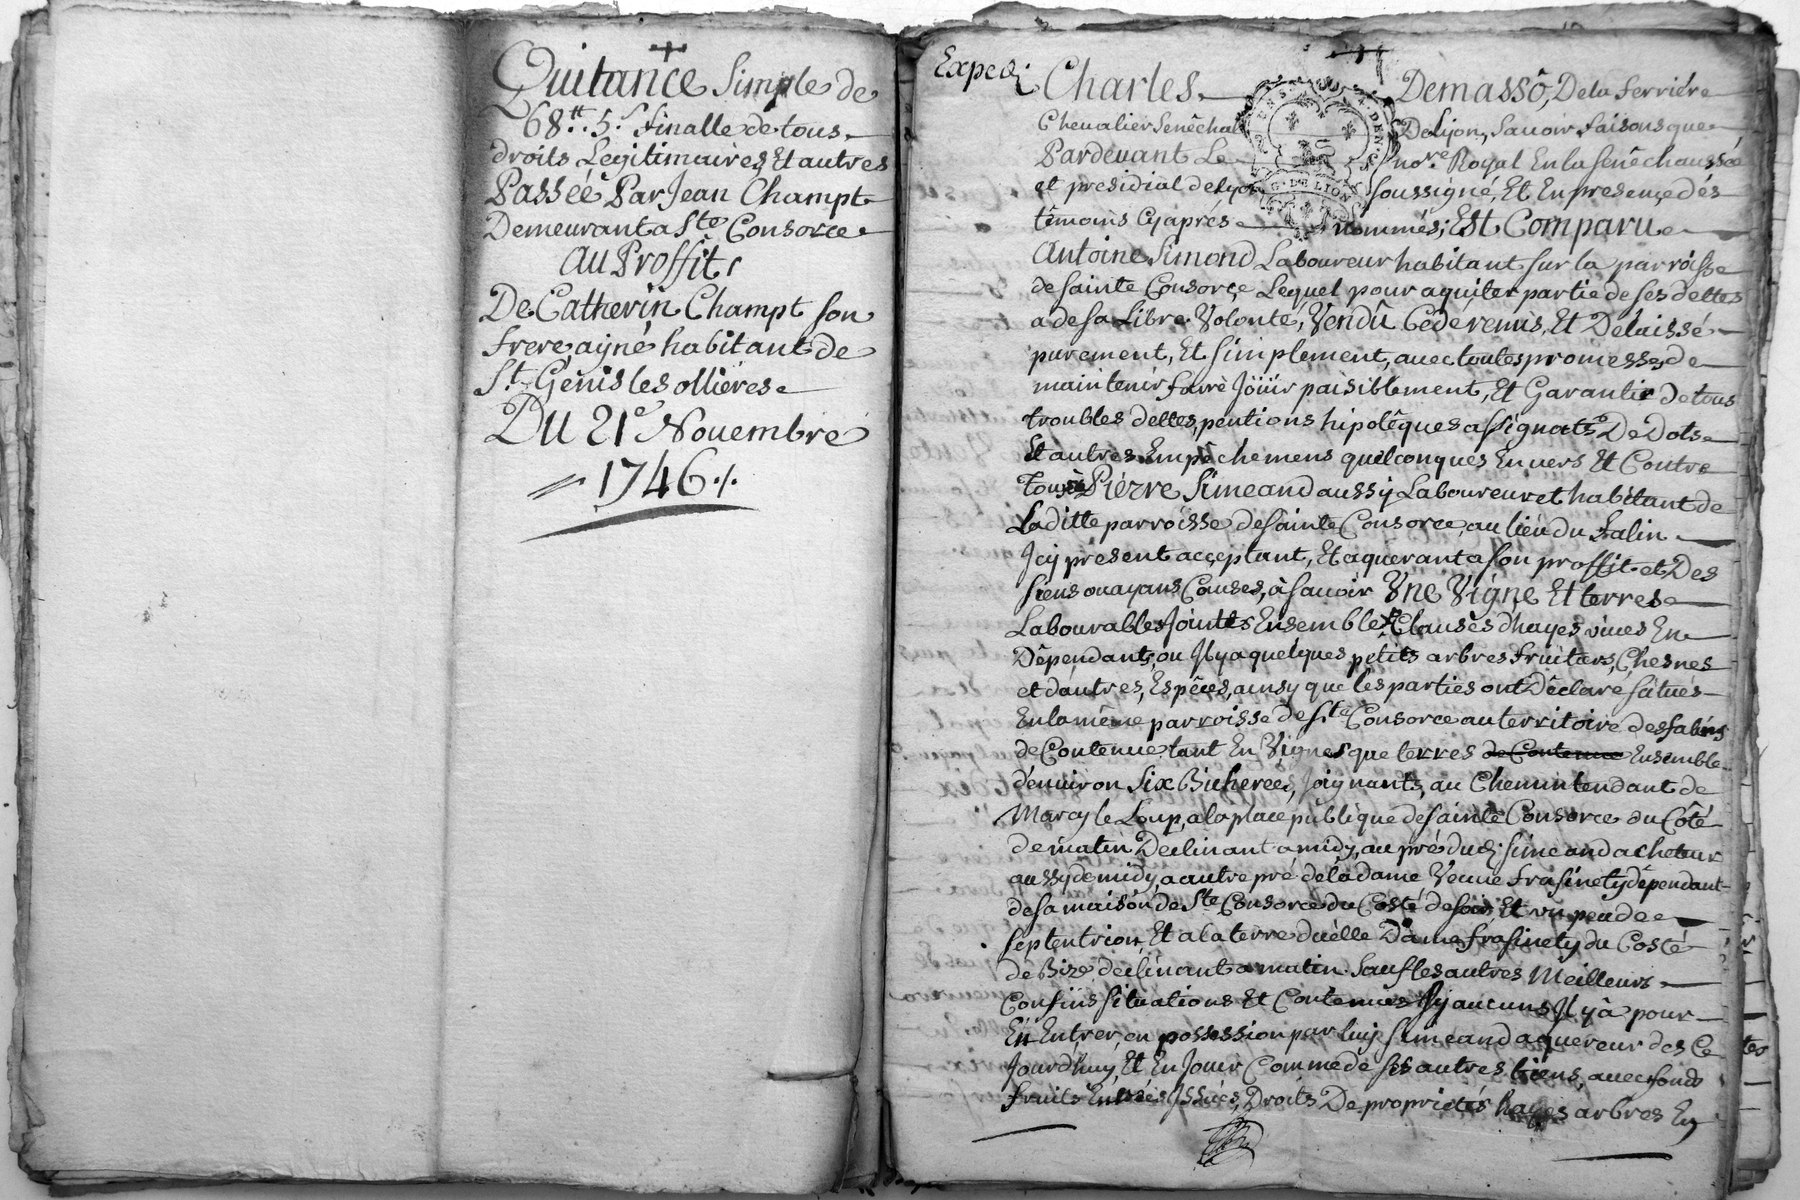 Quitance Simple de
68.tt 5.s finalle de tous
droits Legitimaires, Et autres
Passéé Par Jean Champt
Demeurant a Ste. Consorce
Au Proffit
De Catherin Champt son
frere, ayné habitant de
St. Genis les ollieres
Du 21e Novembre
1746./.
Exped.
Charles Demasso, De la ferriére
Chevalier Senêchal De lyon, Sauoir faisons que
Pardeuant Le nore. Royal En la Senêchaussée
et presidial de Lyon soussigné, Et En presençe dés
têmoins Cyaprés nommés; Est Comparu
Antoine Simond Laboureur habitant sur la parroisse
de Sainte Consorçe Lequel pour aquiter partie de ses dettes
a de sa Libre Volonté, Vendû Cédé remis, Et Délaissé
purement, Et simplement, auec toutes promesses de
maintenir fairè Joüir paisiblement, Et Garantir De tous
troubles dettes, pentions hipotêques assignats De Dots
Et autres Empêchemens quelconques Enuers Et Contre
Tous à Piérre Simeand aussy Laboureur et habitant de
Laditte parroisse de Sainte Consorce, au lieu du Falin
Jcy présent acçeptant, Et aquerant a son proffit et Des
siens ou ayans Causes, à Sauoir Vne Vigne Et terres
Labourables Jointes Ensemble Clauses d'hayes viues En
Dêpendants, ou Jl y a quelques petits arbres fruitiers, Chesnes
et d'autres, Espêces, ainsy que les parties ont Dêclaré situés
En la même parroisse de Ste. Consorce au territoire des falins
de Contenue, tant En Vignes que terres de Contenue Ensemble
d'enuiron Six Bicherées, Joignants, au Chemin tendant de
Marcy le Loup, a la place publique de Sainte Consorce du Côté
de matin Declinant a midy, au pré dud. simeand acheteur
aussy de midy, a autre pré de la dame Veuue Frasinety dépendant
de sa maison de Ste Consorce du Costé de soir, Et vn peu de
septentrion Et a la terre d'icelle Dame frasinety du Costé
de Bize declinant a matin. Sauf les autres Meilleurs
Confins situations Et Contenues sy aucuns Jl y â pour
En Entrer, en possession par luy simeand aquereur des Ce
Jourd'huy, Et En Jouir Comme de ses autres biens, auec fonds
fruits Entrées Jssües, Droits De proprietés hayes arbres En